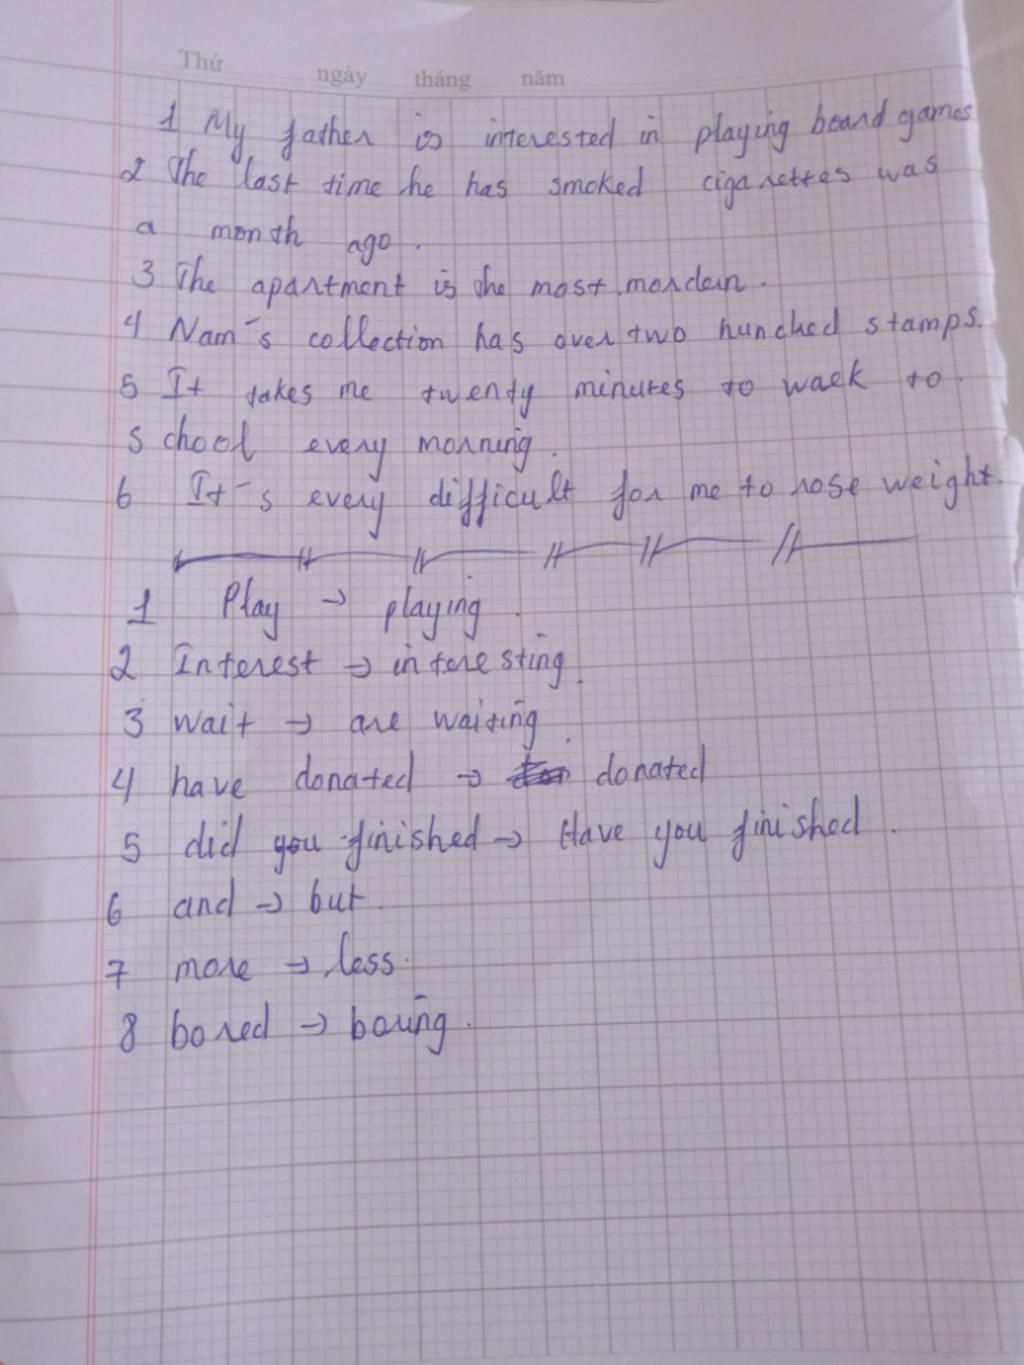 Thứ ngày tháng năm
1 My father is interested in playing board games
2 The last time he has smoked cigarettes was
a month ago.
3 The apartment is the most mordern.
4 Nam's collection has over two hunched stamps.
5 It takes me twenty minutes to walk to
school every morning.
6 It's every difficult for me to rose weight.
1 Play → playing.
2 Interest → interesting.
3 wait → are waiting.
4 have donated → donated
5 did you finished → Have you finished.
6 and → but.
7 more → less.
8 bored → boring.